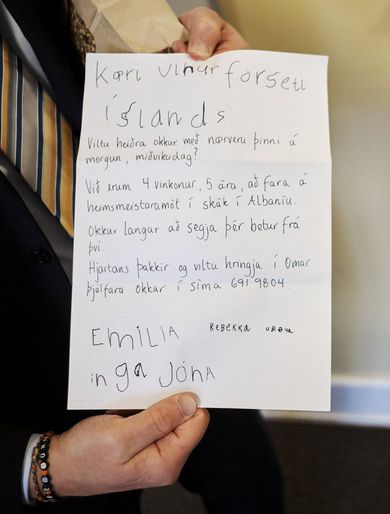 Kæri vinur forseti
íslands.
Viltu heiðra okkur með nærveru þinni á
morgun, miðvikudag?
Við erum 4 vinkonur, 5 ára, að fara á
heimsmeistaramót í skák í Albaníu.
Okkur langar að segja þér betur frá
því.
Hjartans þakkir og viltu hringja í Omar
þjálfara okkar í síma 691 9804.
EMILIA REBEKKA
inga JÓNA